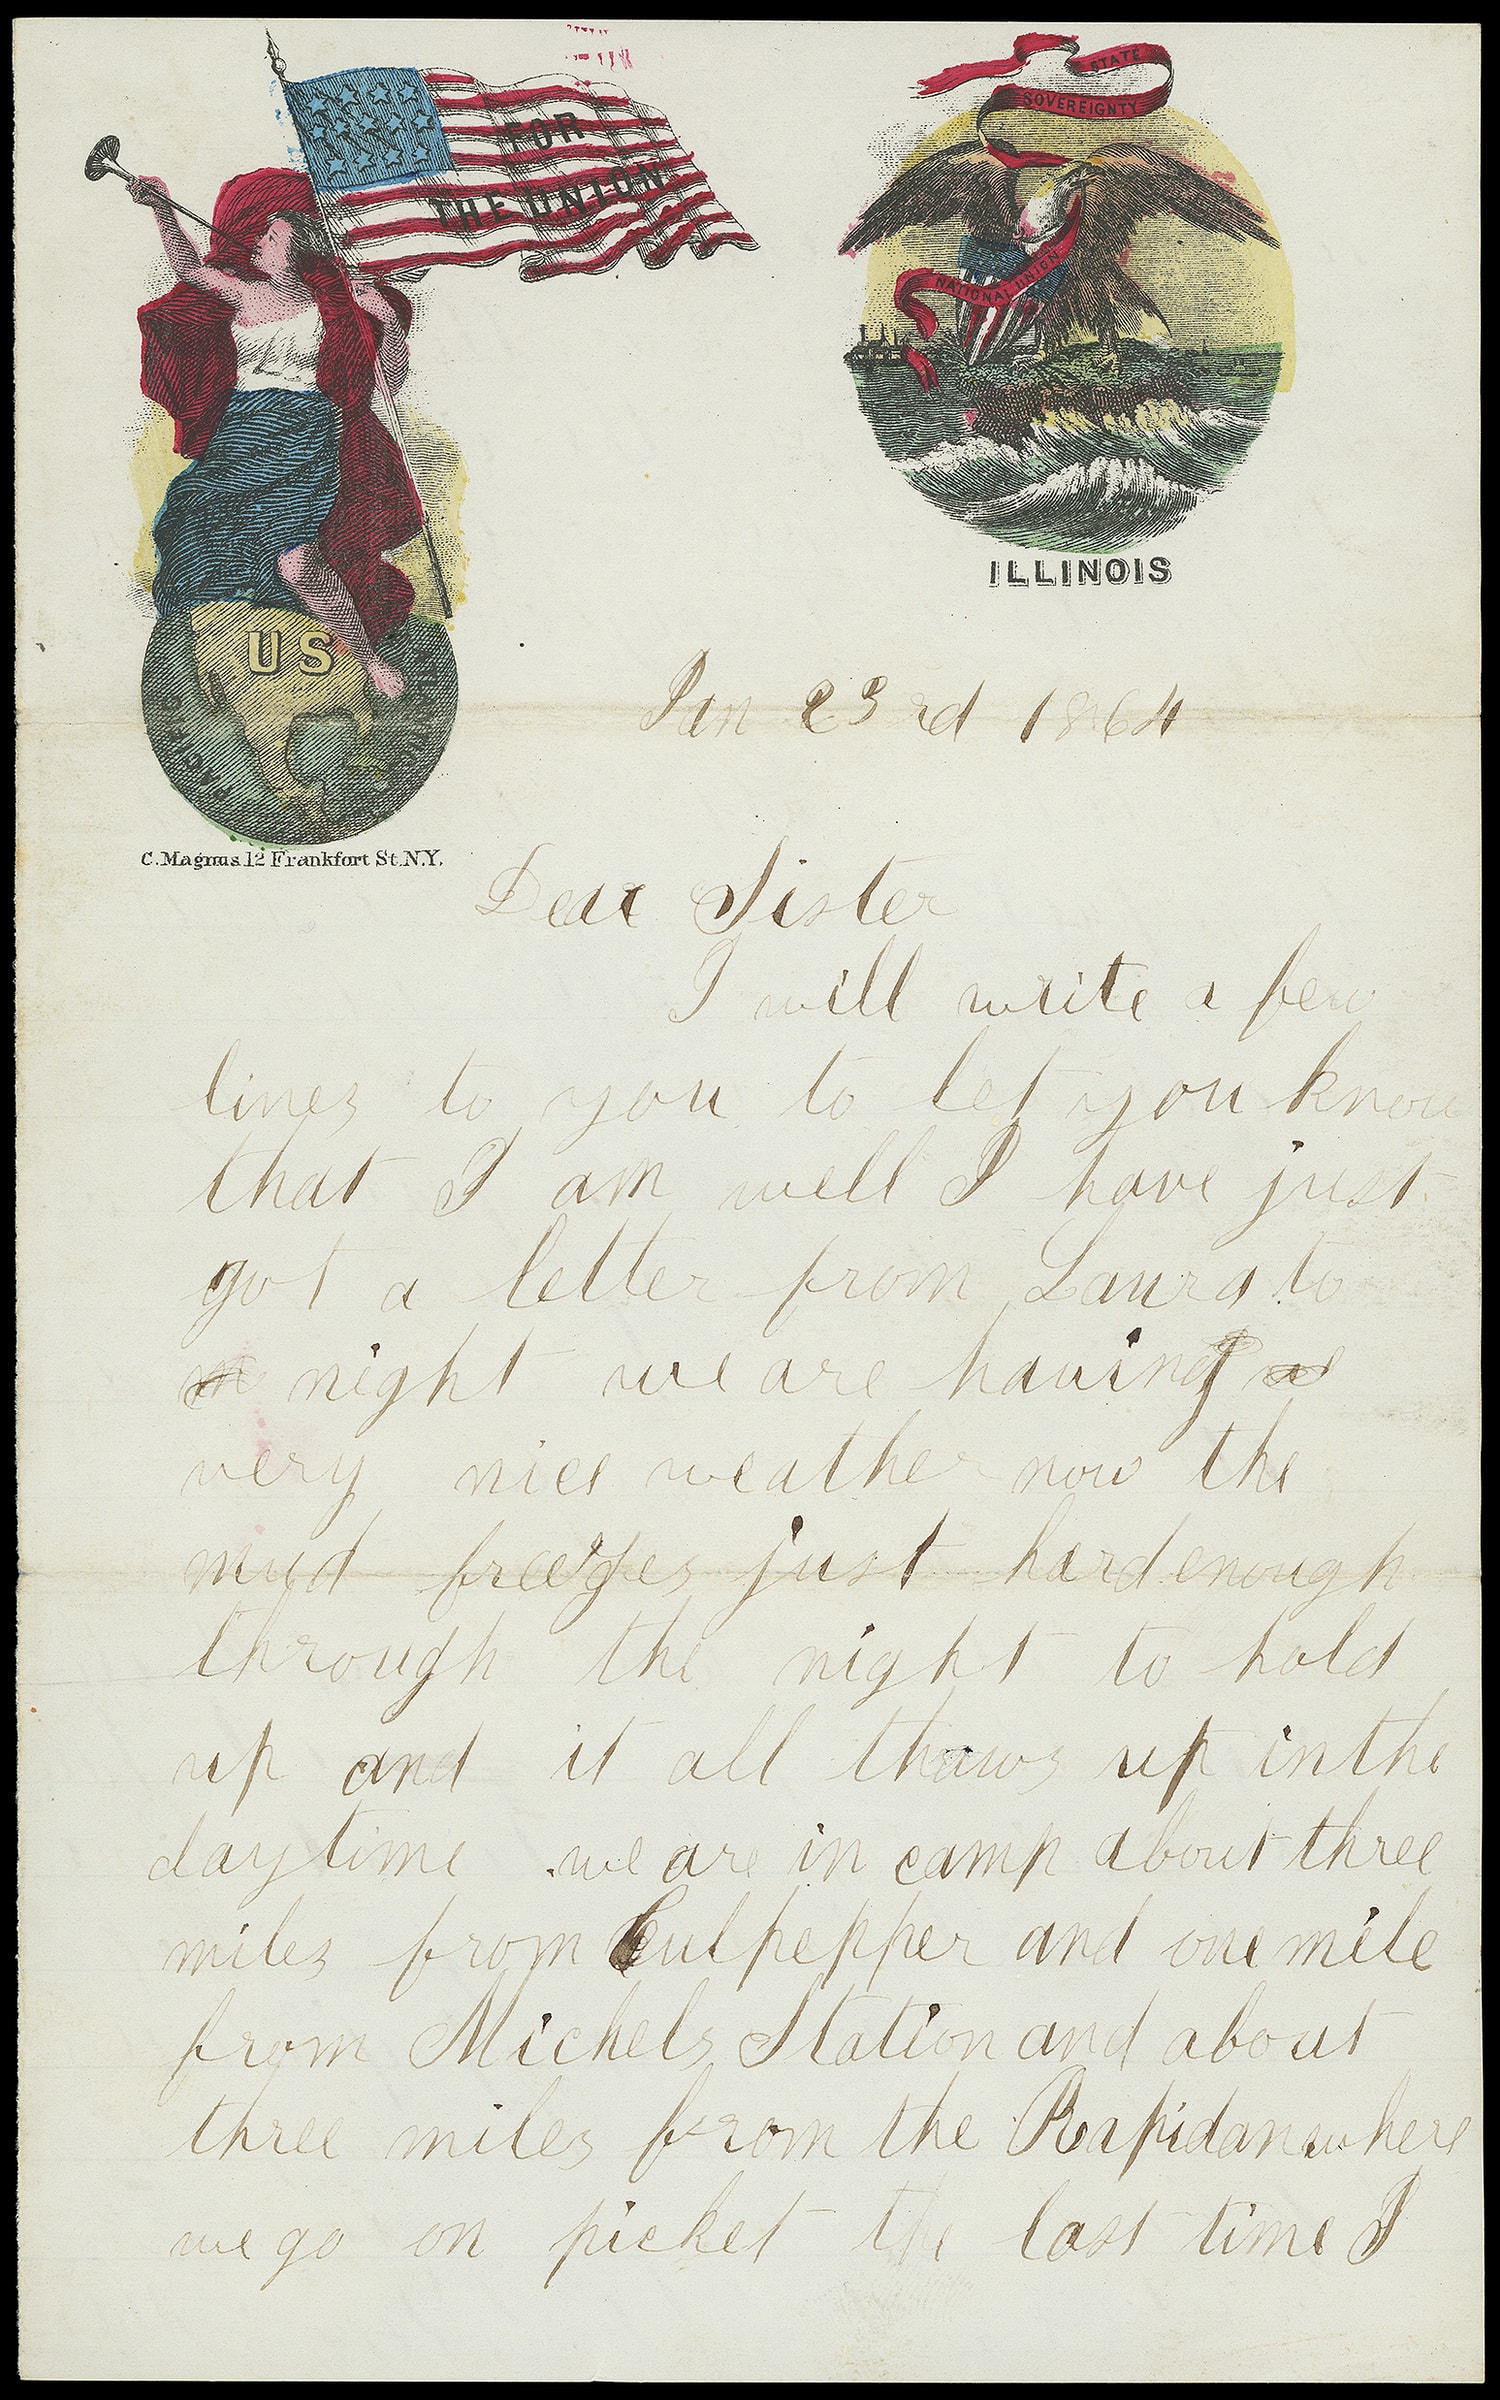 STATE
SOVEREIGNTY
FOR
THE UNION
NATIONAL UNION
ILLINOIS
US
C. Magnus 12 Frankfort St. N.Y.
Jan 23rd 1864
Dear Sister
I will write a few
lines to you to let you know
that I am well I have just
got a letter from Laura to
night we are having
very nice weather now the
mud freezes just hard enough
through the night to hold
up and it all thaws up in the
day time we are in camp about three
miles from Culpepper and one mile
from Michels Station and about
three miles from the Rapidan where
we go on picket the last time I